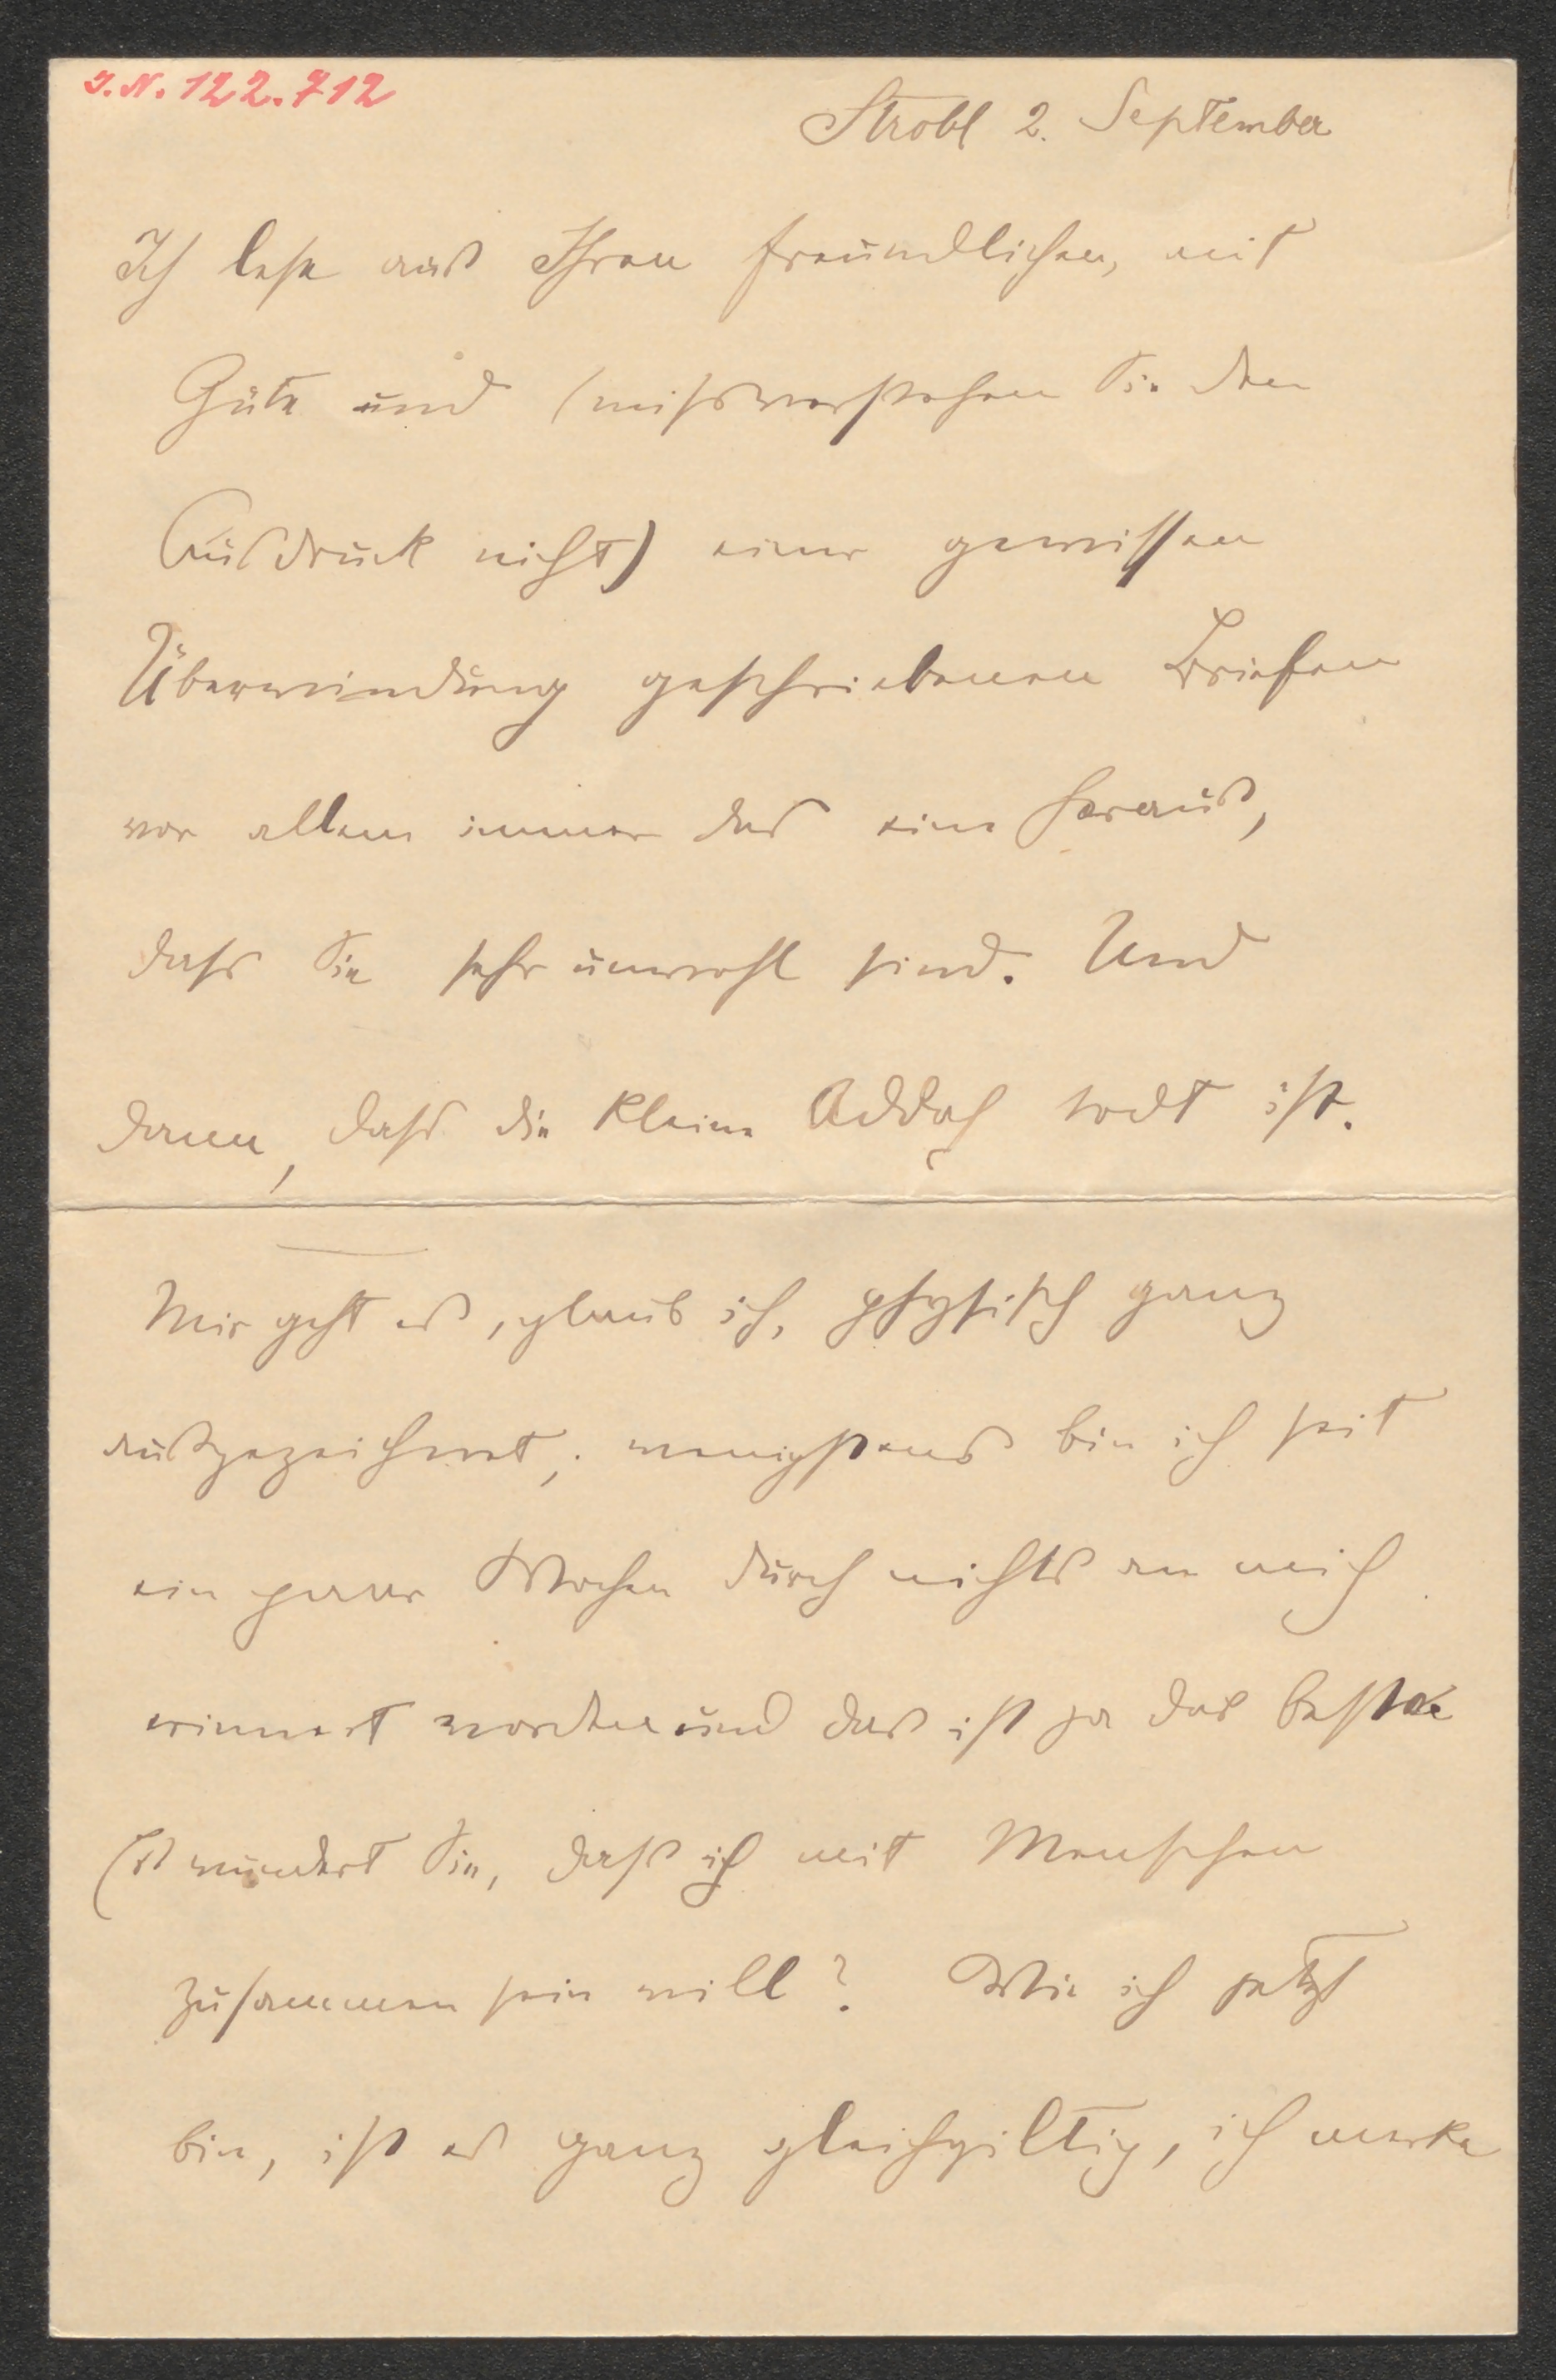 I.N. 122.712
Strobl 2. September
Ich lese aus Ihren freundlichen, mit
Güte und (missverstehen Sie den
Ausdruck nicht) einer gewissen
Überwindung geschriebenen Briefen
vor allem immer das eine heraus,
dass Sie sehr unwohl sind. Und
dann, dass die kleine Addah todt ist.
Mir geht es, glaub ich, physisch ganz
ausgezeichnet; wenigstens bin ich seit
ein paar Wochen durch nichts an mich
erinnert worden und das ist ja das beste
Es wundert Sie, dass ich mit Menschen
zusammen sein will? Wie ich jetzt
bin, ist es ganz gleichgiltig, ich merke